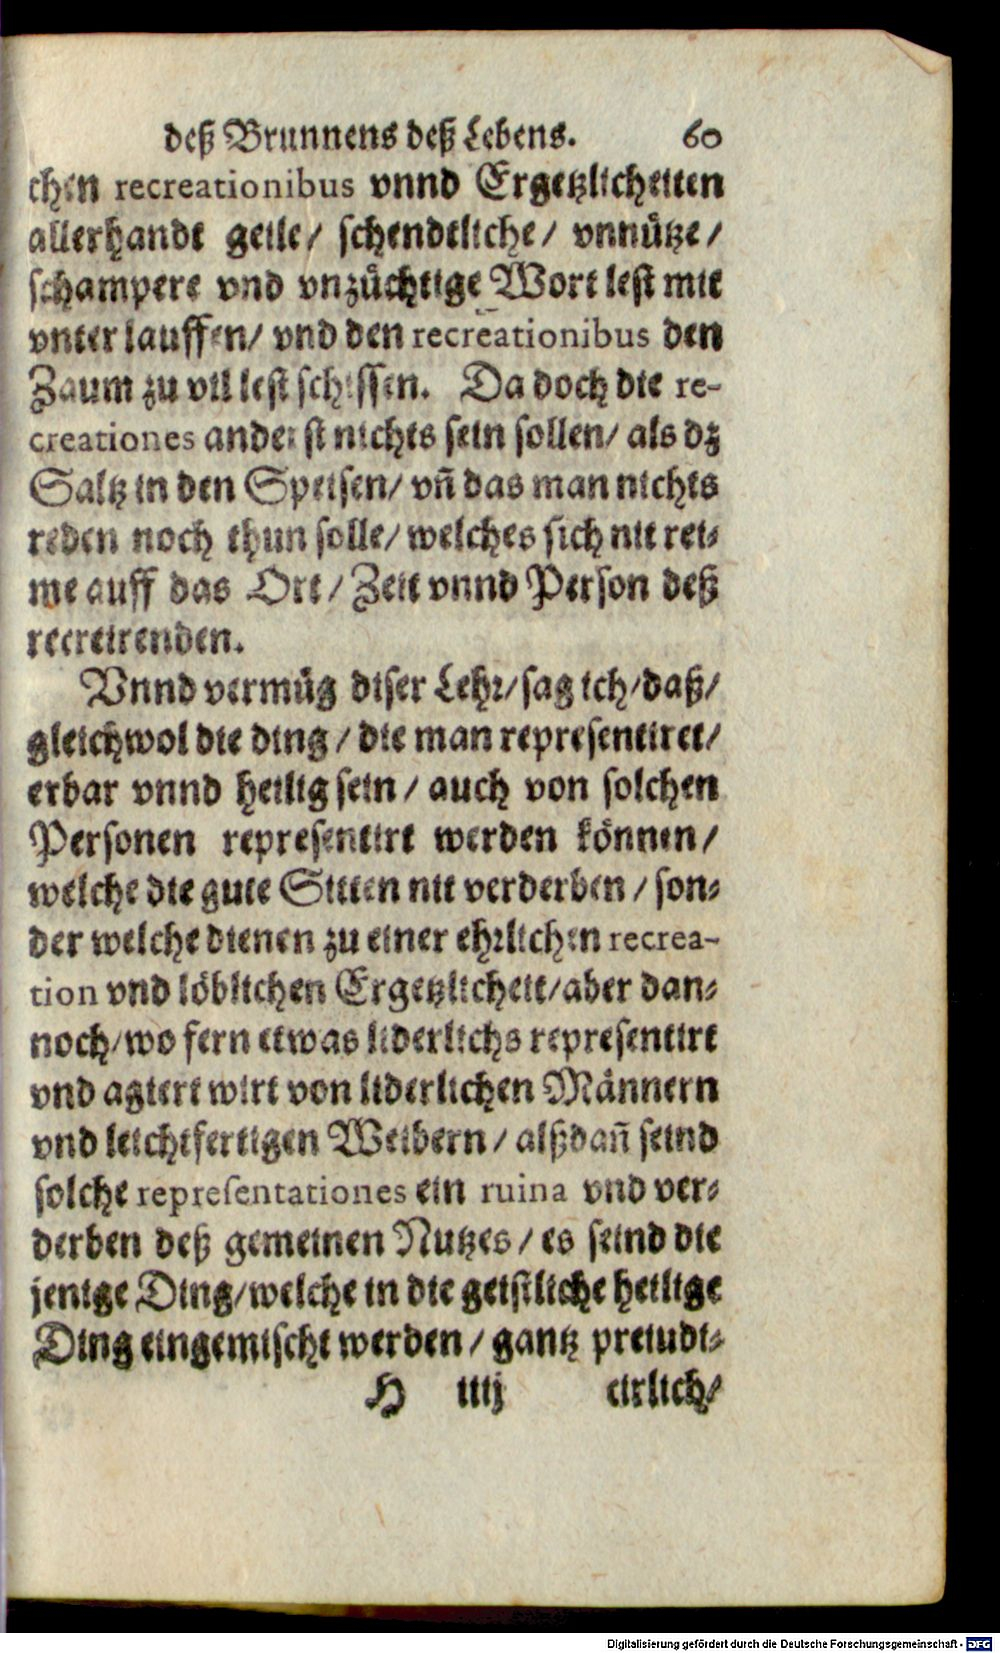 deß Brunnens deß Lebens. 60
chen recreationibus vnnd Ergetzlicheiten
allerhandt geile/ schendtliche/ vnnütze/
schampere vnd vnzüchtige Wort lest mit
vnter lauffen/ vnd den recreationibus den
Zaum zu vil lest schissen. Da doch die re-
creationes anderst nichts sein sollen/ als dz
Saltz in den Speisen/ vñ das man nichts
reden noch thun solle/ welches sich nit rei-
me auff das Ort/ Zeit vnnd Person deß
recreirenden.
Vnnd vermüg diser Lehr/ sag ich/ daß/
gleichwol die ding/ die man representiret/
erbar vnnd heilig sein/ auch von solchen
Personen representirt werden können/
welche die gute Sitten nit verderben/ son-
der welche dienen zu einer ehrlichen recrea-
tion vnd löblichen Ergetzlicheit/ aber dan-
noch/ wo fern etwas liderlichs representirt
vnd agiert wirt von liderlichen Männern
vnd leichtfertigen Weibern/ alßdañ seind
solche representationes ein ruina vnd ver-
derben deß gemeinen Nutzes/ es seind die
jenige Ding/ welche in die geistliche heilige
Ding eingemischt werden/ gantz preiudi-
H iiij cirlich/
Digitalisierung gefördert durch die Deutsche Forschungsgemeinschaft - DFG